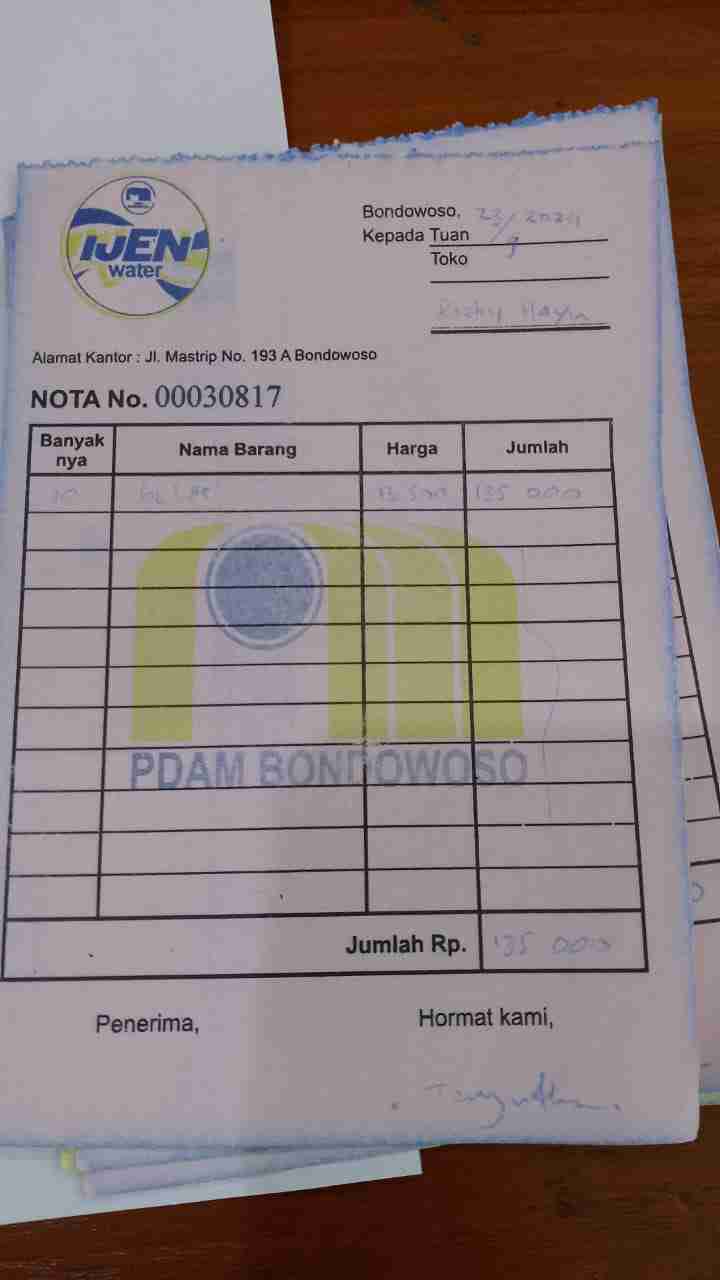 IJEN
water
Bondowoso, 23/9 2024
Kepada Tuan
Toko
Rizky
Alamat Kantor : Jl. Mastrip No. 193 A Bondowoso
NOTA No. 00030817
Banyak nya Nama Barang Harga Jumlah
10 13 500 135 000
PDAM BONDOWOSO
Jumlah Rp. 135 000
Penerima, Hormat kami,